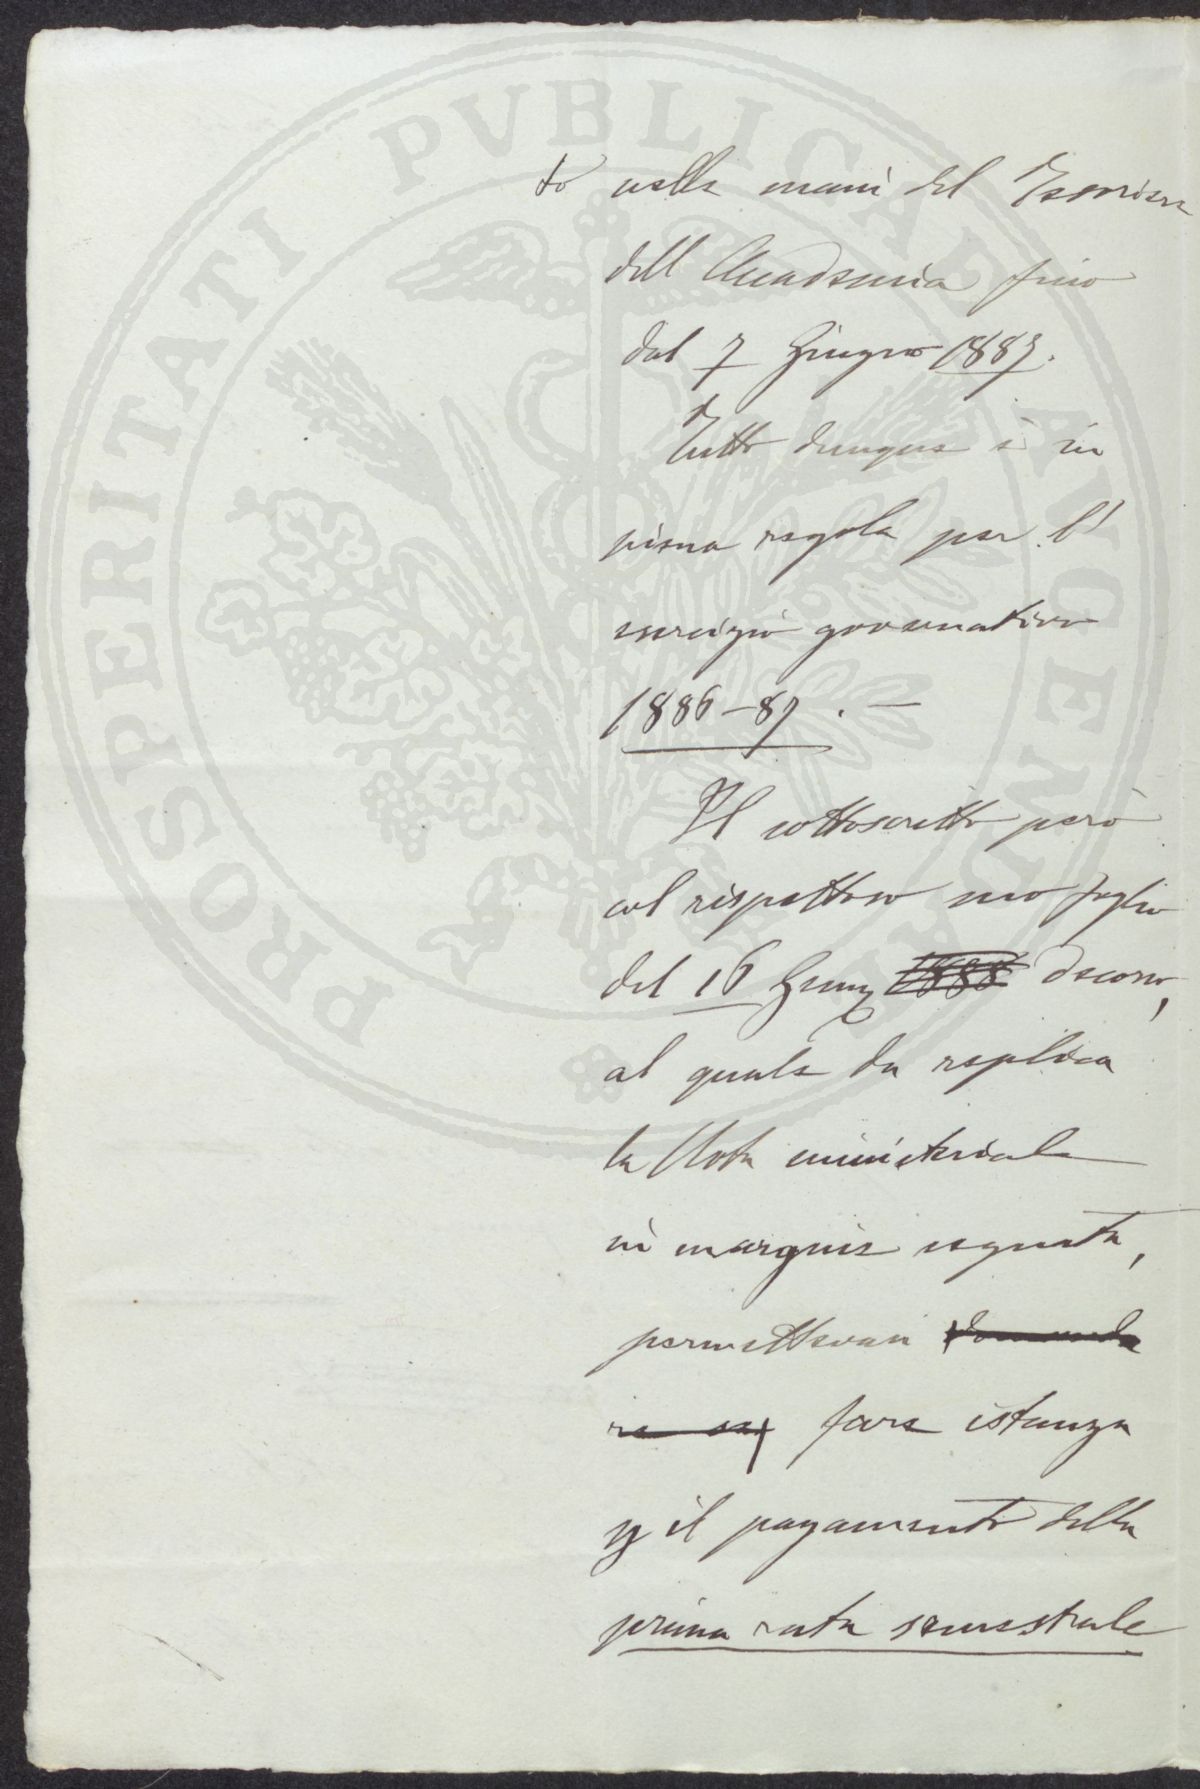 PROSPERITATI PVBLICAE AVGENDAE
to nelle mani del Tesoriere
dell Accademia fino
dal 7 Giugno 1887.
Tutto dunque è in
piena regola per l'
esercizio governativo
1886-87. —
Il sottoscritto però
col rispettoso suo foglio
del 16 Genn 1888 decorso,
al quale da replica
la Nota ministeriale
in margine segnata,
permettevasi domanda
re fare istanza
il pagamento della
prima rata semestrale